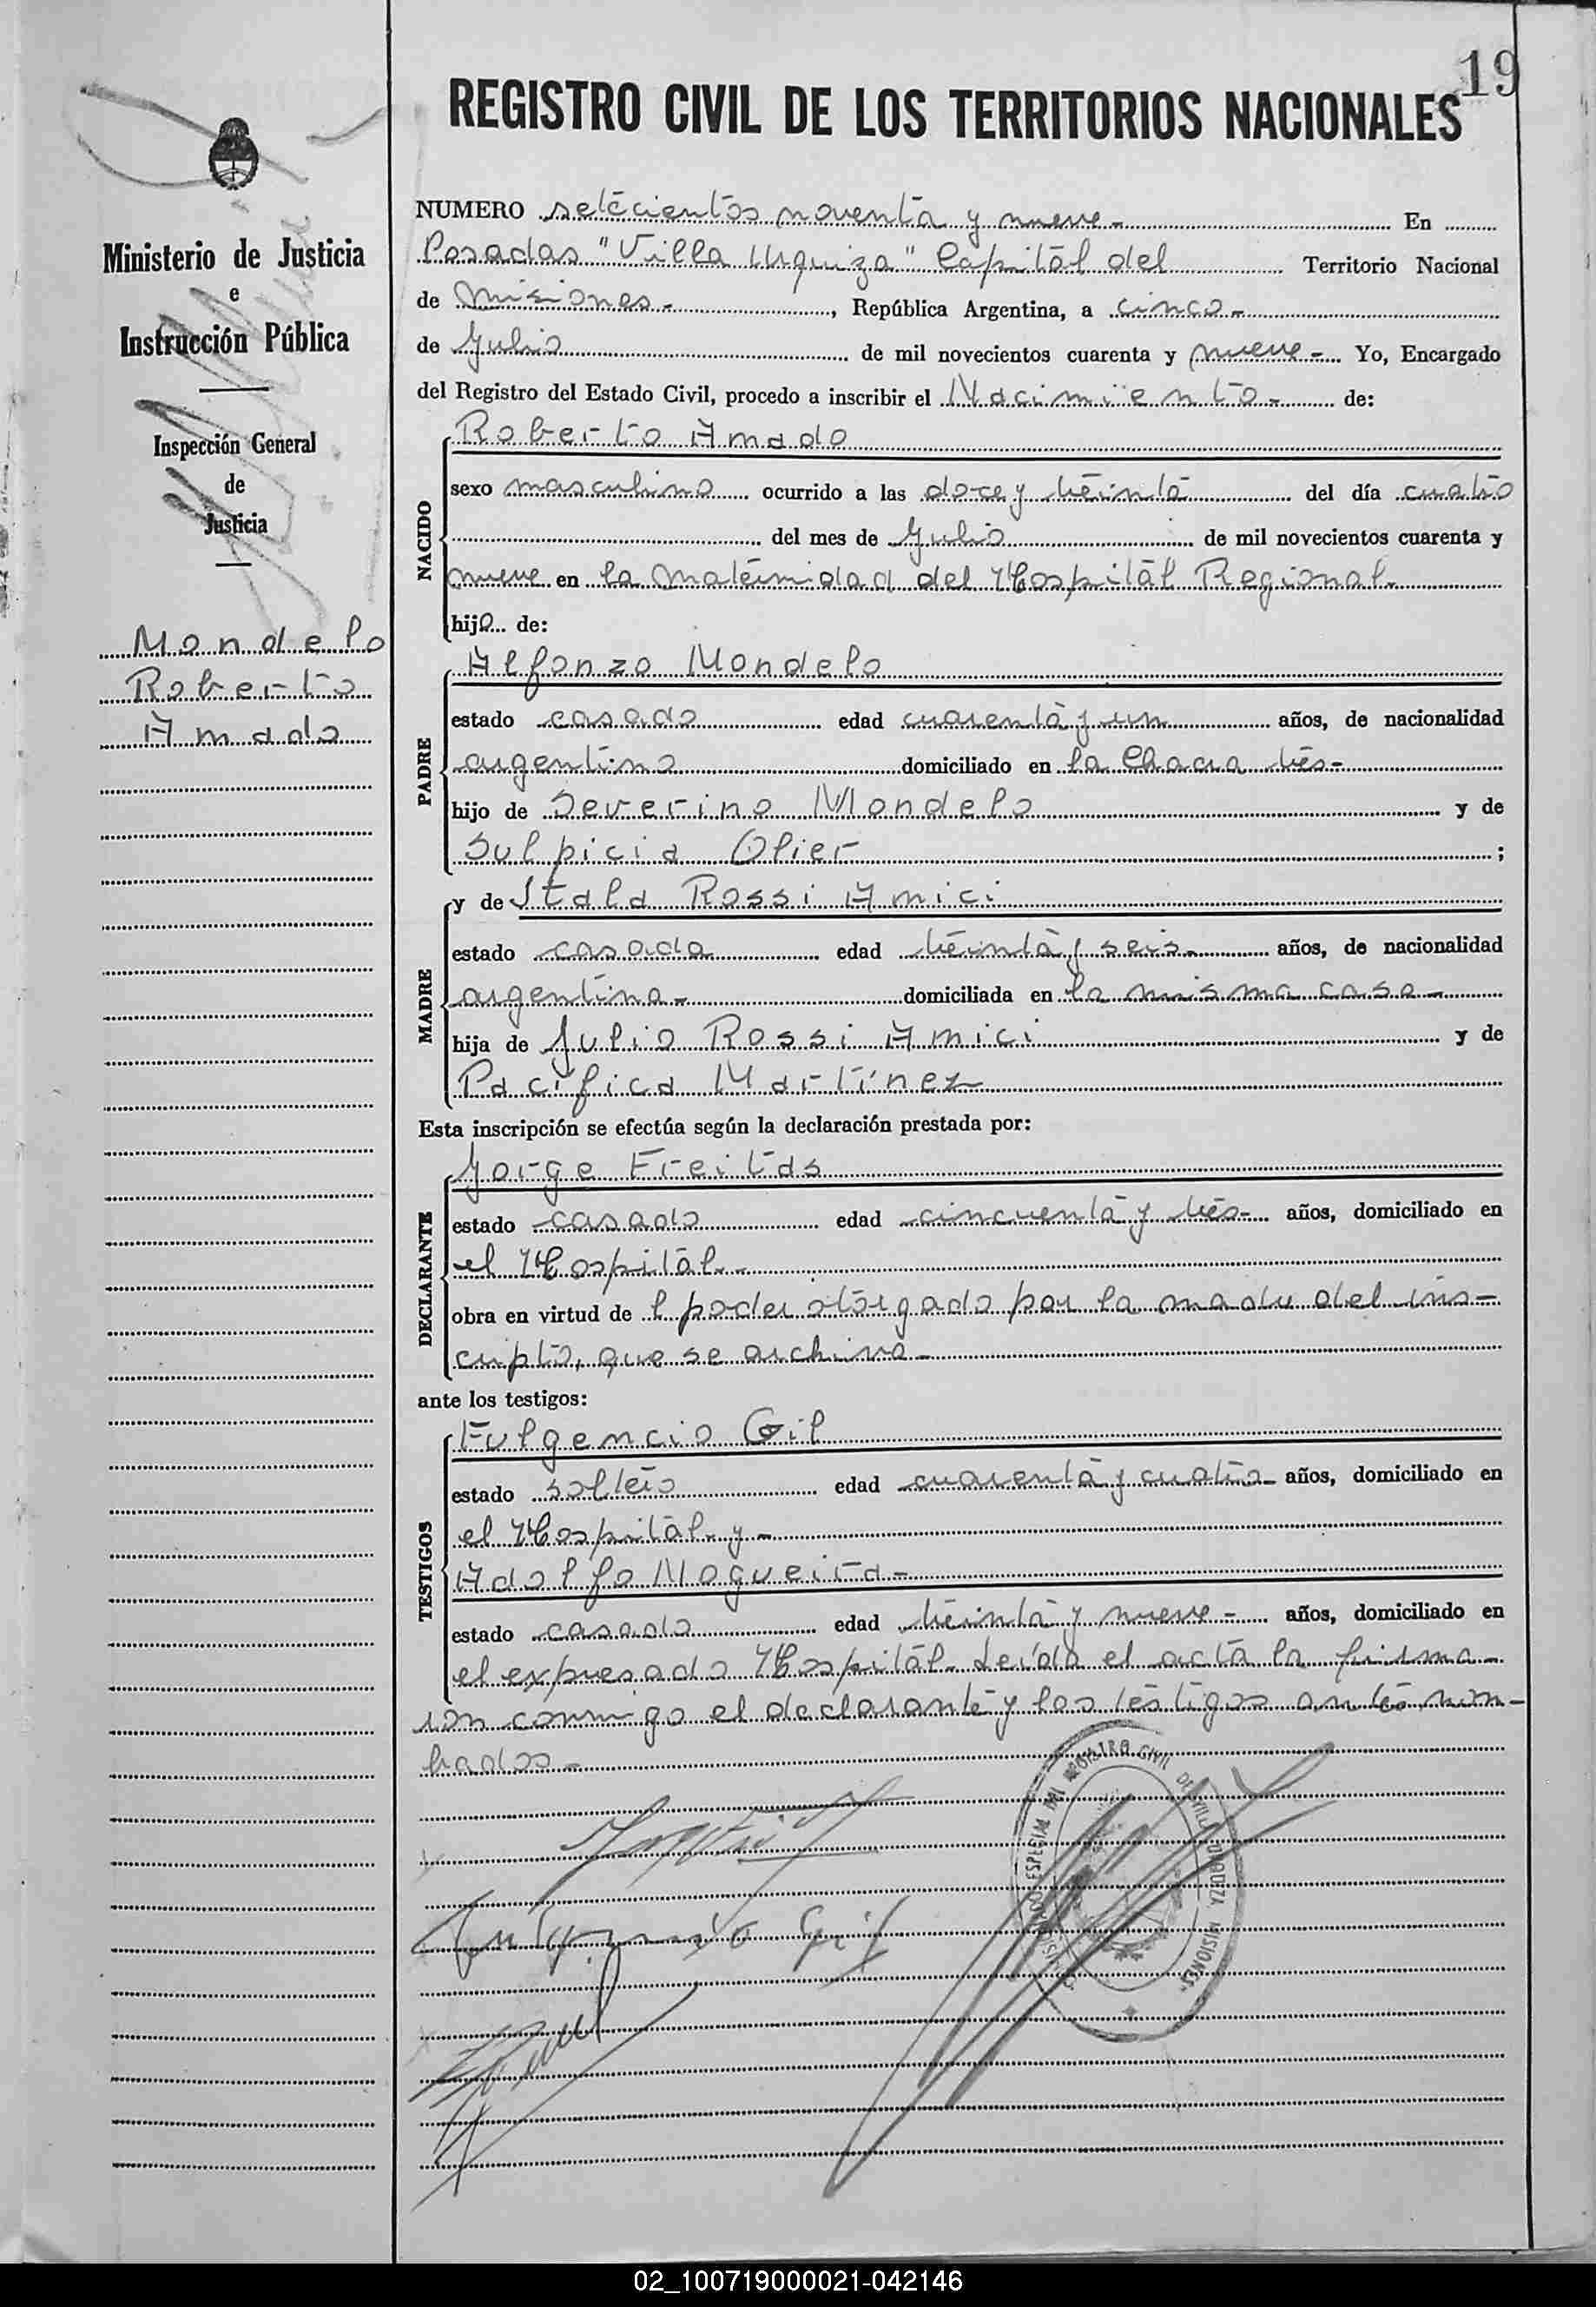 19
REGISTRO CIVIL DE LOS TERRITORIOS NACIONALES
Ministerio de Justicia
e
Instrucción Pública
Inspección General
de
Justicia
Mondelo
Roberto
Amado
NUMERO setecientos noventa y nueve - En
Posadas "Villa Urquiza" Capital del Territorio Nacional
de Misiones - , República Argentina, a cinco -
de Julio de mil novecientos cuarenta y nueve - Yo, Encargado
del Registro del Estado Civil, procedo a inscribir el Nacimiento - de:
NACIDO
Roberto Amado
sexo masculino ocurrido a las doce y treinta del día cuatro
del mes de Julio de mil novecientos cuarenta y
nueve en la maternidad del Hospital Regional.
hijo de:
PADRE
Alfonzo Mondelo
estado casado edad cuarenta y un años, de nacionalidad
argentino domiciliado en la Chacra tres -
hijo de Severino Mondelo y de
Sulpicia Olier ;
MADRE
y de Itala Rossi Amici
estado casada edad treinta y seis - años, de nacionalidad
argentina - domiciliada en la misma casa -
hija de Julio Rossi Amici y de
Pacífica Martínez
Esta inscripción se efectúa según la declaración prestada por:
DECLARANTE
Jorge Freitas
estado casado edad cincuenta y tres - años, domiciliado en
el Hospital -
obra en virtud de l poder otorgado por la madre del ins-
cripto, que se archiva -
ante los testigos:
TESTIGOS
Fulgencio Gil
estado soltero edad cuarenta y cuatro - años, domiciliado en
el Hospital - y -
Adolfo Nogueira -
estado casado edad treinta y nueve - años, domiciliado en
el expresado Hospital. Leída el acta la firma-
ron conmigo el declarante y los testigos antes nom-
brados -
REGISTRO CIVIL DE VILLA URQUIZA MISIONES
Fulgencio Gil
02_100719000021-042146